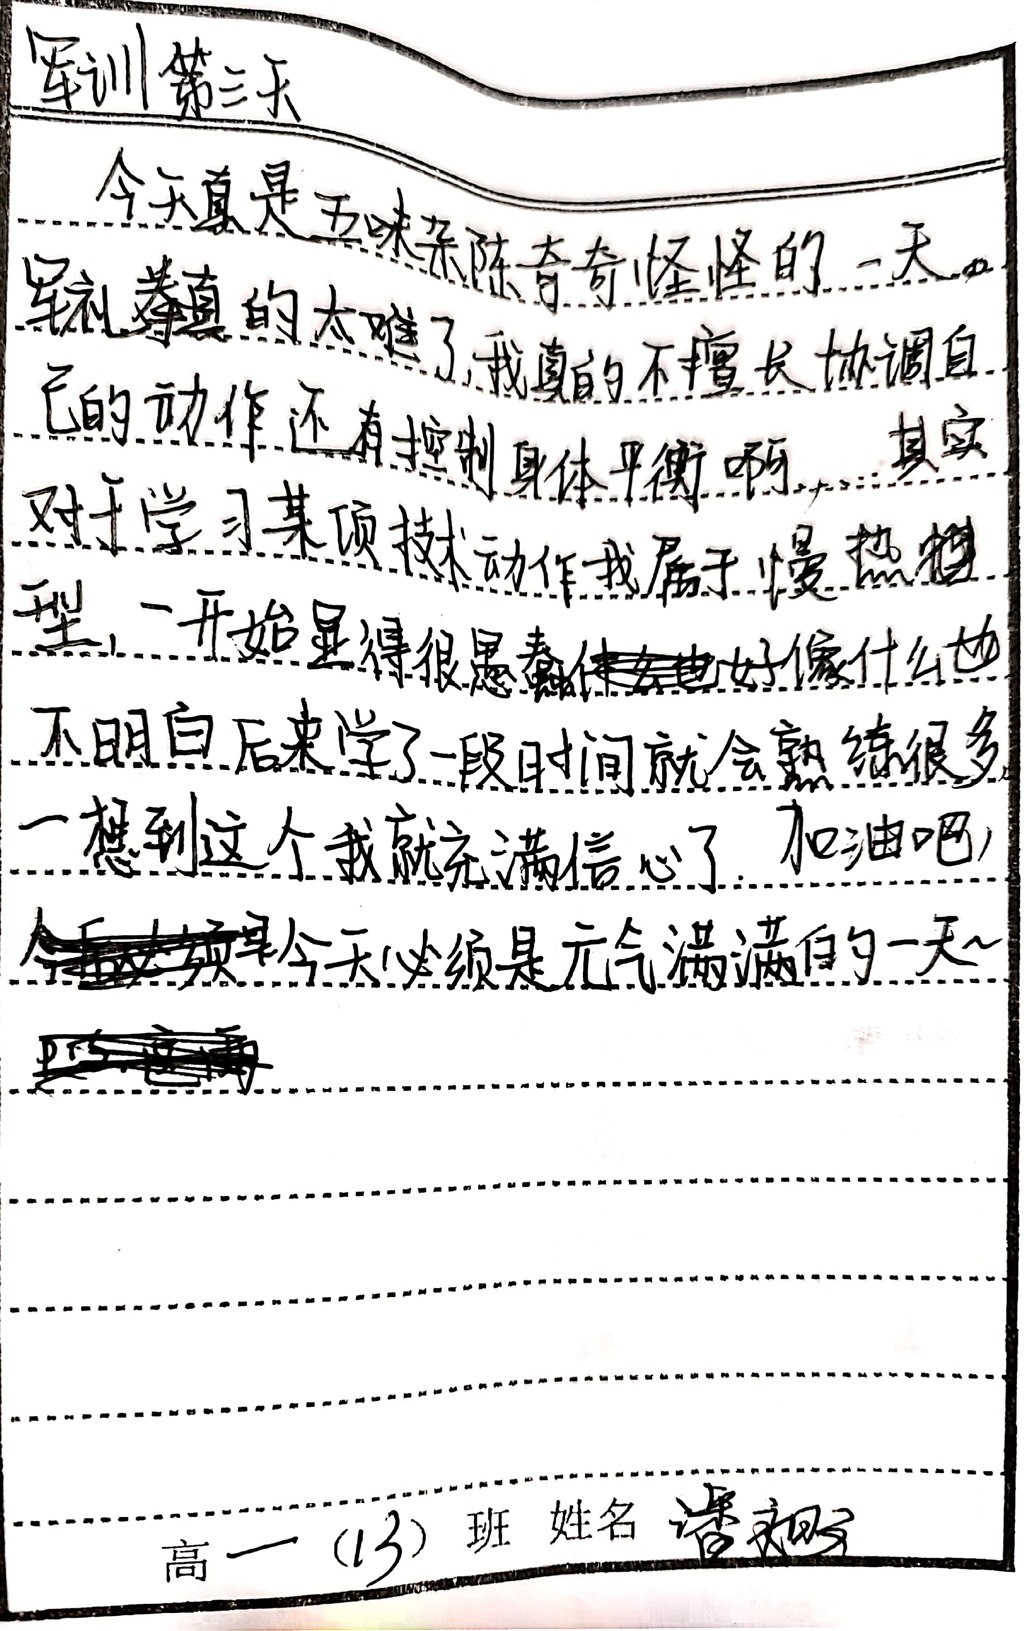 军训第三天
今天真是五味杂陈奇奇怪怪的一天。
军礼拳真的太难了,我真的不擅长协调自
己的动作还有控制身体平衡啊......其实
对于学习某项技术动作我属于慢热
型,一开始显得很愚蠢好像什么也
不明白后来学了一段时间就会熟练很多,
一想到这个我就充满信心了.加油吧,
今天必须是元气满满的一天~
高一(13)班 姓名 潘